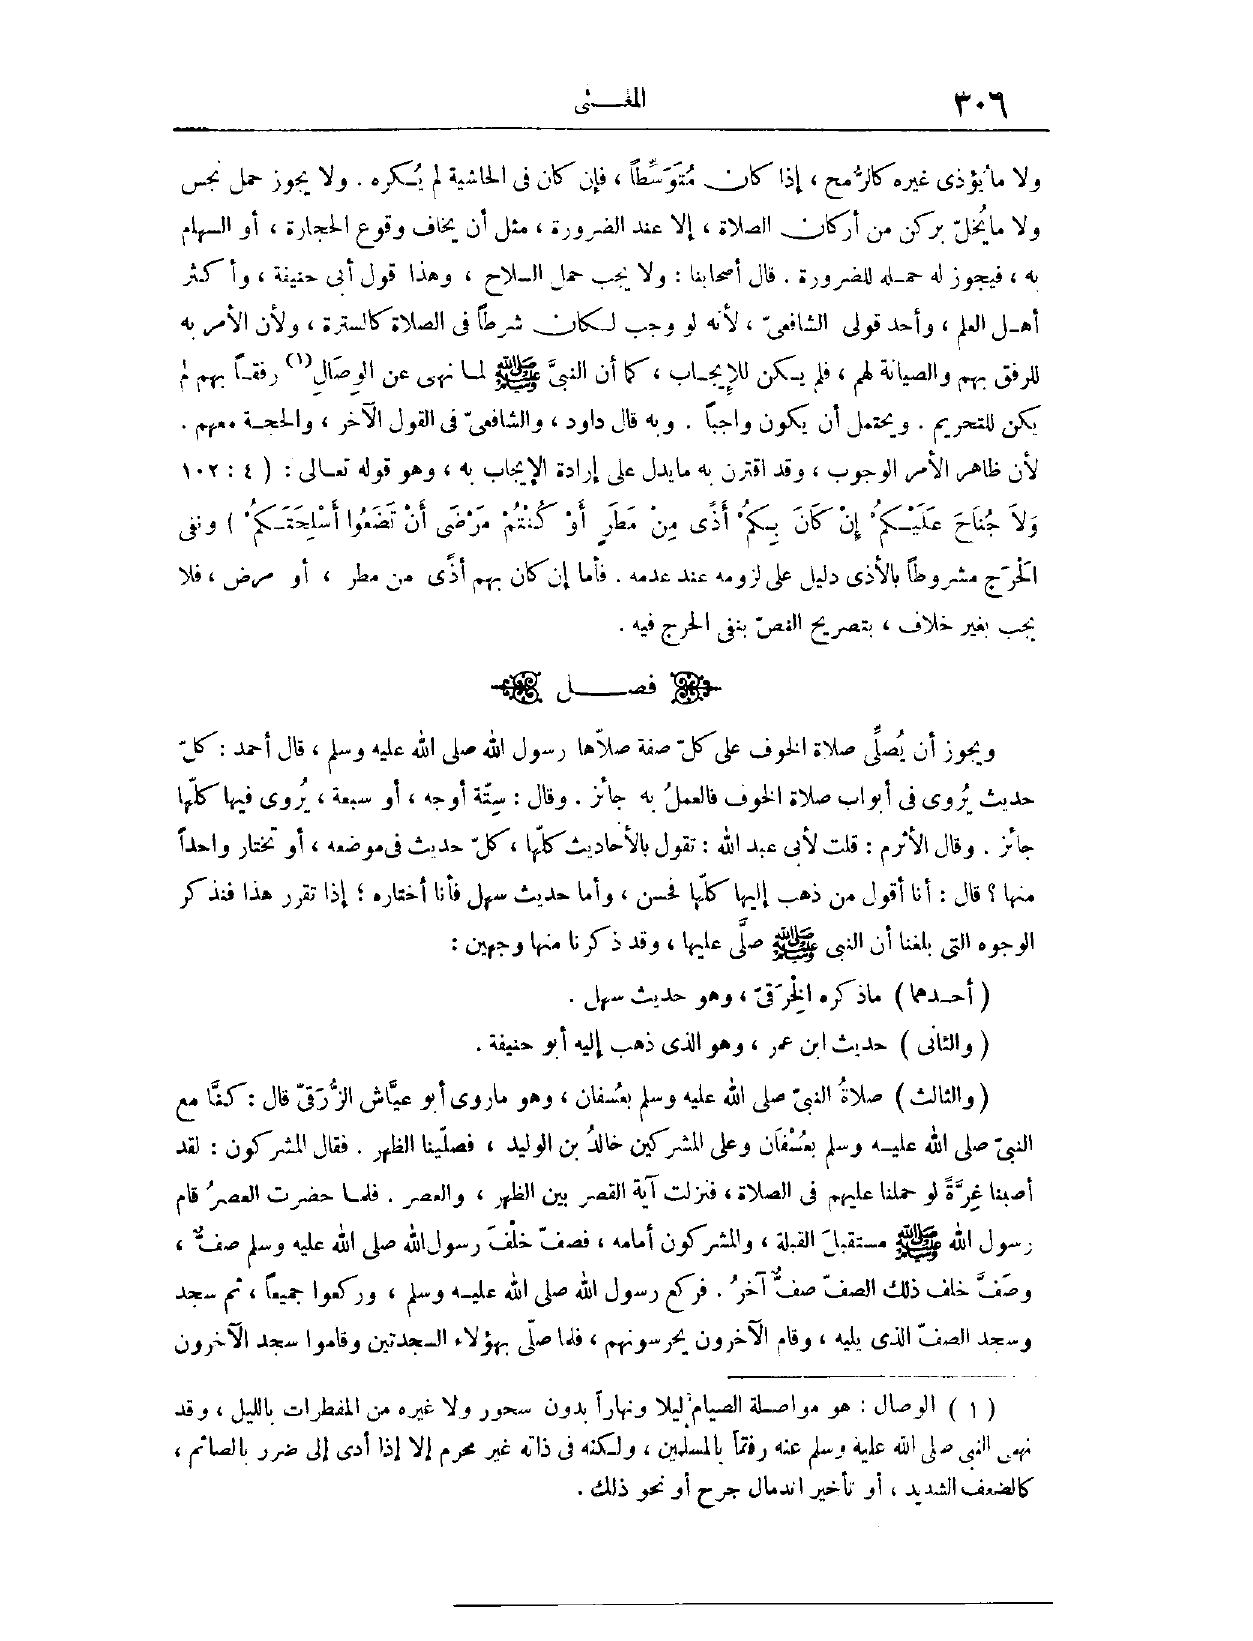 ٣٠٦
المغـــنى
ولا ما يؤذى غيره كالرُّمح ، إذا كان مُتَوَسِّطاً ، فإن كان فى الحاشية لم يُـكره . ولا يجوز حمل نجس
ولا ما يُخلّ بركن من أركان الصلاة ، إلا عند الضرورة ، مثل أن يخاف وقوع الحجارة ، أو السهام
به ، فيجوز له حمـله للضرورة . قال أصحابنا : ولا يجب حمل السلاح ، وهذا قول أبى حنيفة ، وأكثر
أهـل العلم ، وأحد قولى الشافعىّ ، لأنه لو وجب لـكان شرطاً فى الصلاة كالسترة ، ولأن الأمر به
للرفق بهم والصيانة لهم ، فلم يـكن للإيجـاب ، كما أن النبىَّ ﷺ لمـا نهى عن الوِصَالِ (١) رفقـاً بهم لم
يكن للتحريم . ويحتمل أن يكون واجباً . وبه قال داود ، والشافعىّ فى القول الآخر ، والحجـة معهم .
لأن ظاهر الأمر الوجوب ، وقد اقترن به مايدل على إرادة الإيجاب به ، وهو قوله تعـالى : ( ٤ : ١٠٢
وَلاَ جُنَاحَ عَلَيْـكُمْ إِنْ كَانَ بِـكُمْ أَذًى مِنْ مَطَرٍ أَوْ كُنْتُمْ مَرْضَى أَنْ تَضَعُوا أَسْلِحَتَـكُمْ ) ونفى
الحَرَج مشروطاً بالأذى دليل على لزومه عند عدمه . فأما إن كان بهم أذًى من مطر ، أو مرض ، فلا
يجب بغير خلاف ، بتصريح النصّ بنفى الحرج فيه .
فصـــل
ويجوز أن يُصلِّى صلاة الخوف على كلّ صفة صلّاها رسول الله صلى الله عليه وسلم ، قال أحمد : كلّ
حديث يُروى فى أبواب صلاة الخوف فالعملُ به جائز . وقال : سِتّة أوجه ، أو سبعة ، يُروى فيها كلّها
جائز . وقال الأثرم : قلت لأبى عبد الله : تقول بالأحاديث كلّها ، كلّ حديث فى موضعه ، أو تختار واحداً
منها ؟ قال : أنا أقول من ذهب إليها كلّها فحسن ، وأما حديث سهل فأنا أختاره ؛ إذا تقرر هذا فنذكر
الوجوه التى بلغنا أن النبى ﷺ صلَّى عليها ، وقد ذكرنا منها وجهين :
( أحـدهما ) ماذكره الخِرَقىّ ، وهو حديث سهل .
( والثانى ) حديث ابن عمر ، وهو الذى ذهب إليه أبو حنيفة .
( والثالث ) صلاةُ النبىّ صلى الله عليه وسلم بعُسْفان ، وهو ماروى أبو عيَّاش الزُّرَقىّ قال : كنَّا مع
النبىّ صلى الله عليـه وسلم بعُسْفَان وعلى المشركين خالدُ بن الوليد ، فصلّينا الظهر . فقال المشركون : لقد
أصبنا غِرَّةً لو حملنا عليهم فى الصلاة ، فنزلت آية القصر بين الظهر ، والعصر . فلمـا حضرت العصرُ قام
رسول الله ﷺ مستقبلَ القبلة ، والمشركون أمامه ، فصفّ خلْفَ رسول الله صلى الله عليه وسلم صفٌّ ،
وصَفَّ خلف ذلك الصفّ صفٌّ آخرُ . فركع رسول الله صلى الله عليـه وسلم ، وركعوا جميعاً ، ثم سجد
وسجد الصفّ الذى يليه ، وقام الآخرون يحرسونهم ، فلما صلّى بهؤلاء السجدتين وقاموا سجد الآخرون
( ١ ) الوصال : هو مواصلة الصيام ليلا ونهاراً بدون سحور ولا غيره من المفطرات بالليل ، وقد
نهى النبى صلى الله عليه وسلم عنه رفقاً بالمسلمين ، ولكنه فى ذاته غير محرم إلا إذا أدى إلى ضرر بالصائم ،
كالضعف الشديد ، أو تأخير اندمال جرح أو نحو ذلك .